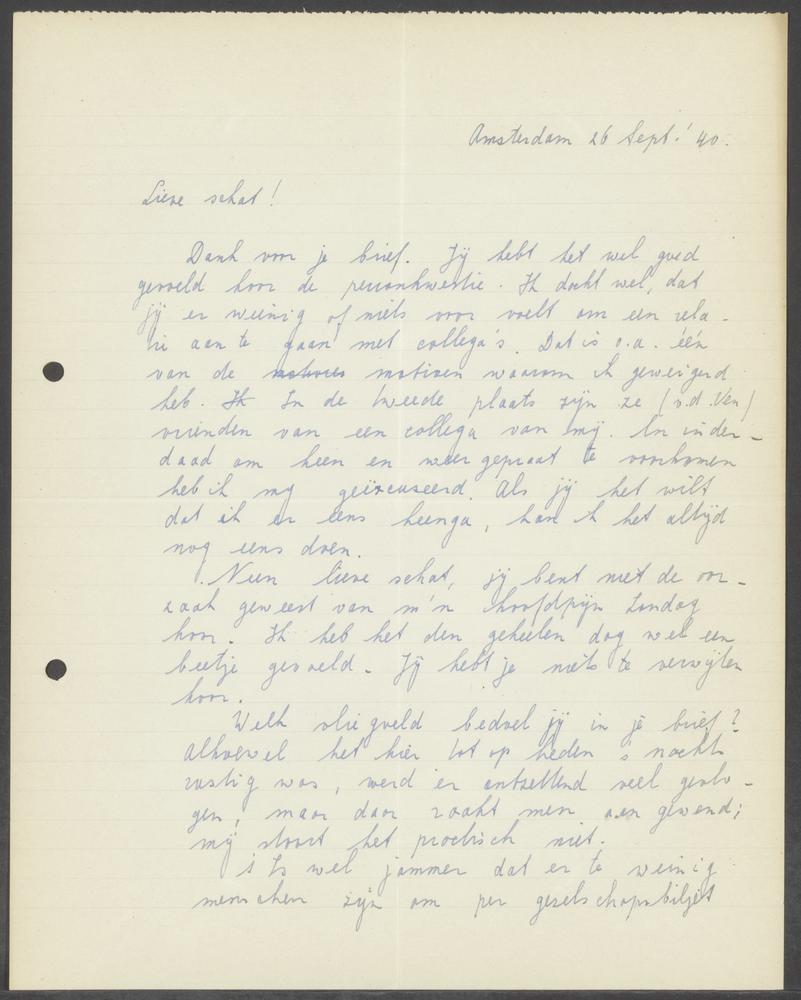 Amsterdam 26 Sept.' 40.
Lieve schat!
Dank voor je brief. Jij hebt het wel goed
gevoeld hoor de kwestie. Ik dacht wel, dat
jij er weinig of niets voor voelt om een rela-
tie aan te gaan met collega's. Dat is o.a. één
van de motieven waarom ik geweigerd
heb. Ik In de tweede plaats zijn ze (v.d. Ven)
vrienden van een collega van mij. Om inder-
daad om heen en weer gepraat te voorkomen
heb ik mij geëxcuseerd. Als jij het wilt
dat ik er eens heenga, kan ik het altijd
nog eens doen.
Neen lieve schat, jij bent niet de oor-
zaak geweest van m'n hoofdpijn Zondag
hoor. Ik heb het den geheelen dag wel een
beetje gevoeld. Jij hebt je niets te verwijten
hoor.
Welk vliegveld bedoel jij in je brief?
Alhoewel het hier tot op heden 's nachts
rustig was, werd er ontzettend veel gevlo-
gen, maar daar raakt men aan gewend;
mij stoort het practisch niet.
't Is wel jammer dat er te weinig
menschen zijn om per gezelschapsbiljet